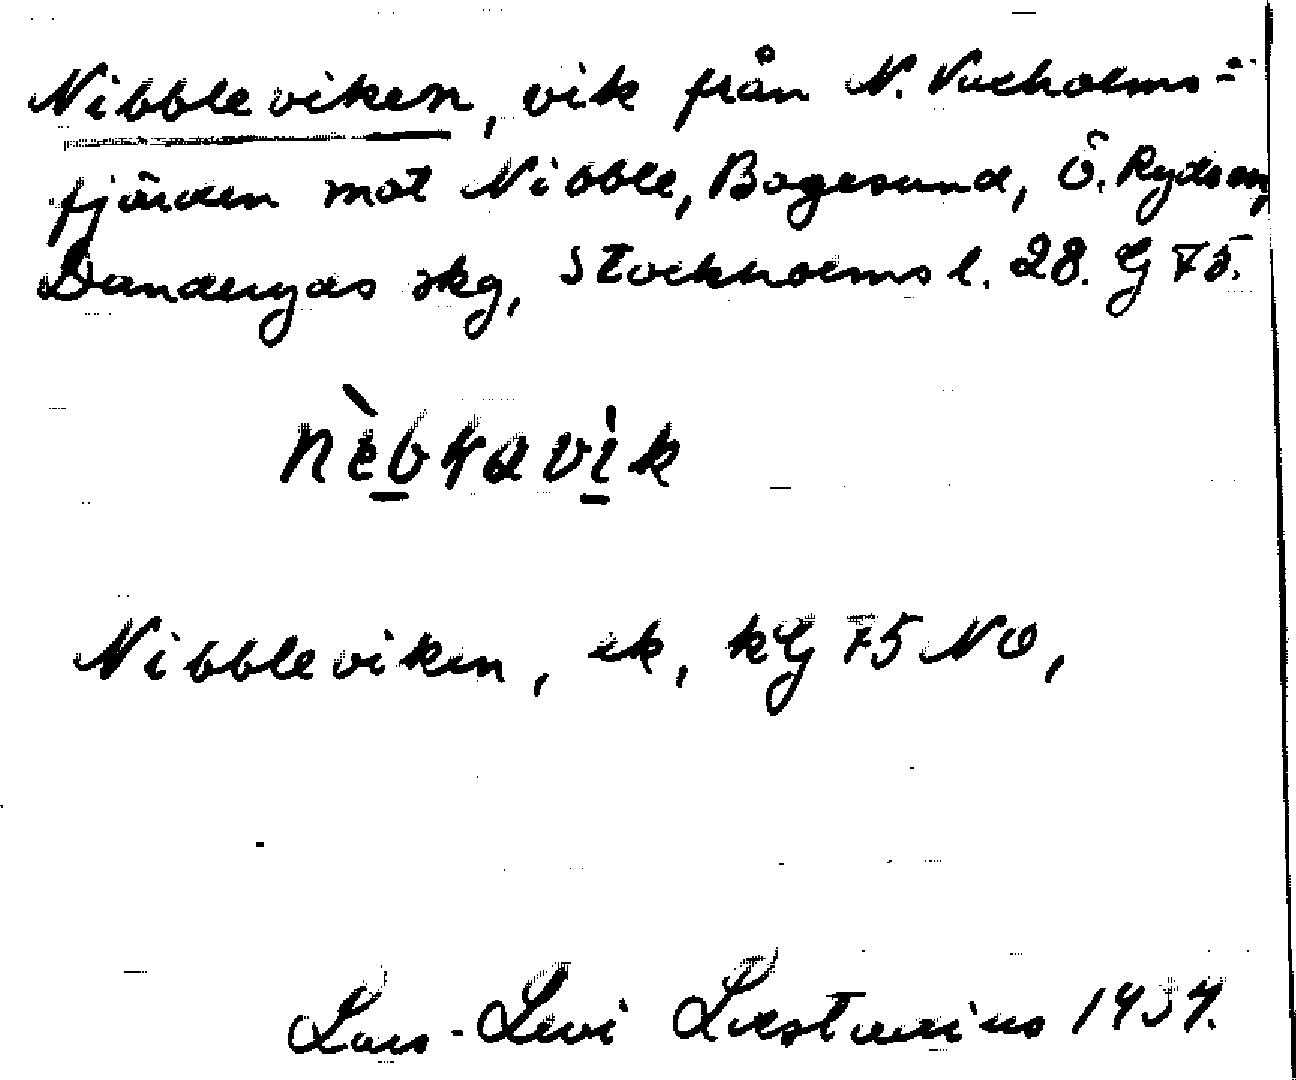 Nibbleviken, vik från N. Vaxholms-
fjärden mot Nibble, Bogesund, Ö. Ryds sn,
Danderyds skg, Stockholms l. 28. G 75.
Nibbleviken, ek, kG 75 NO,
Lars-Levi Læstadius 1937.